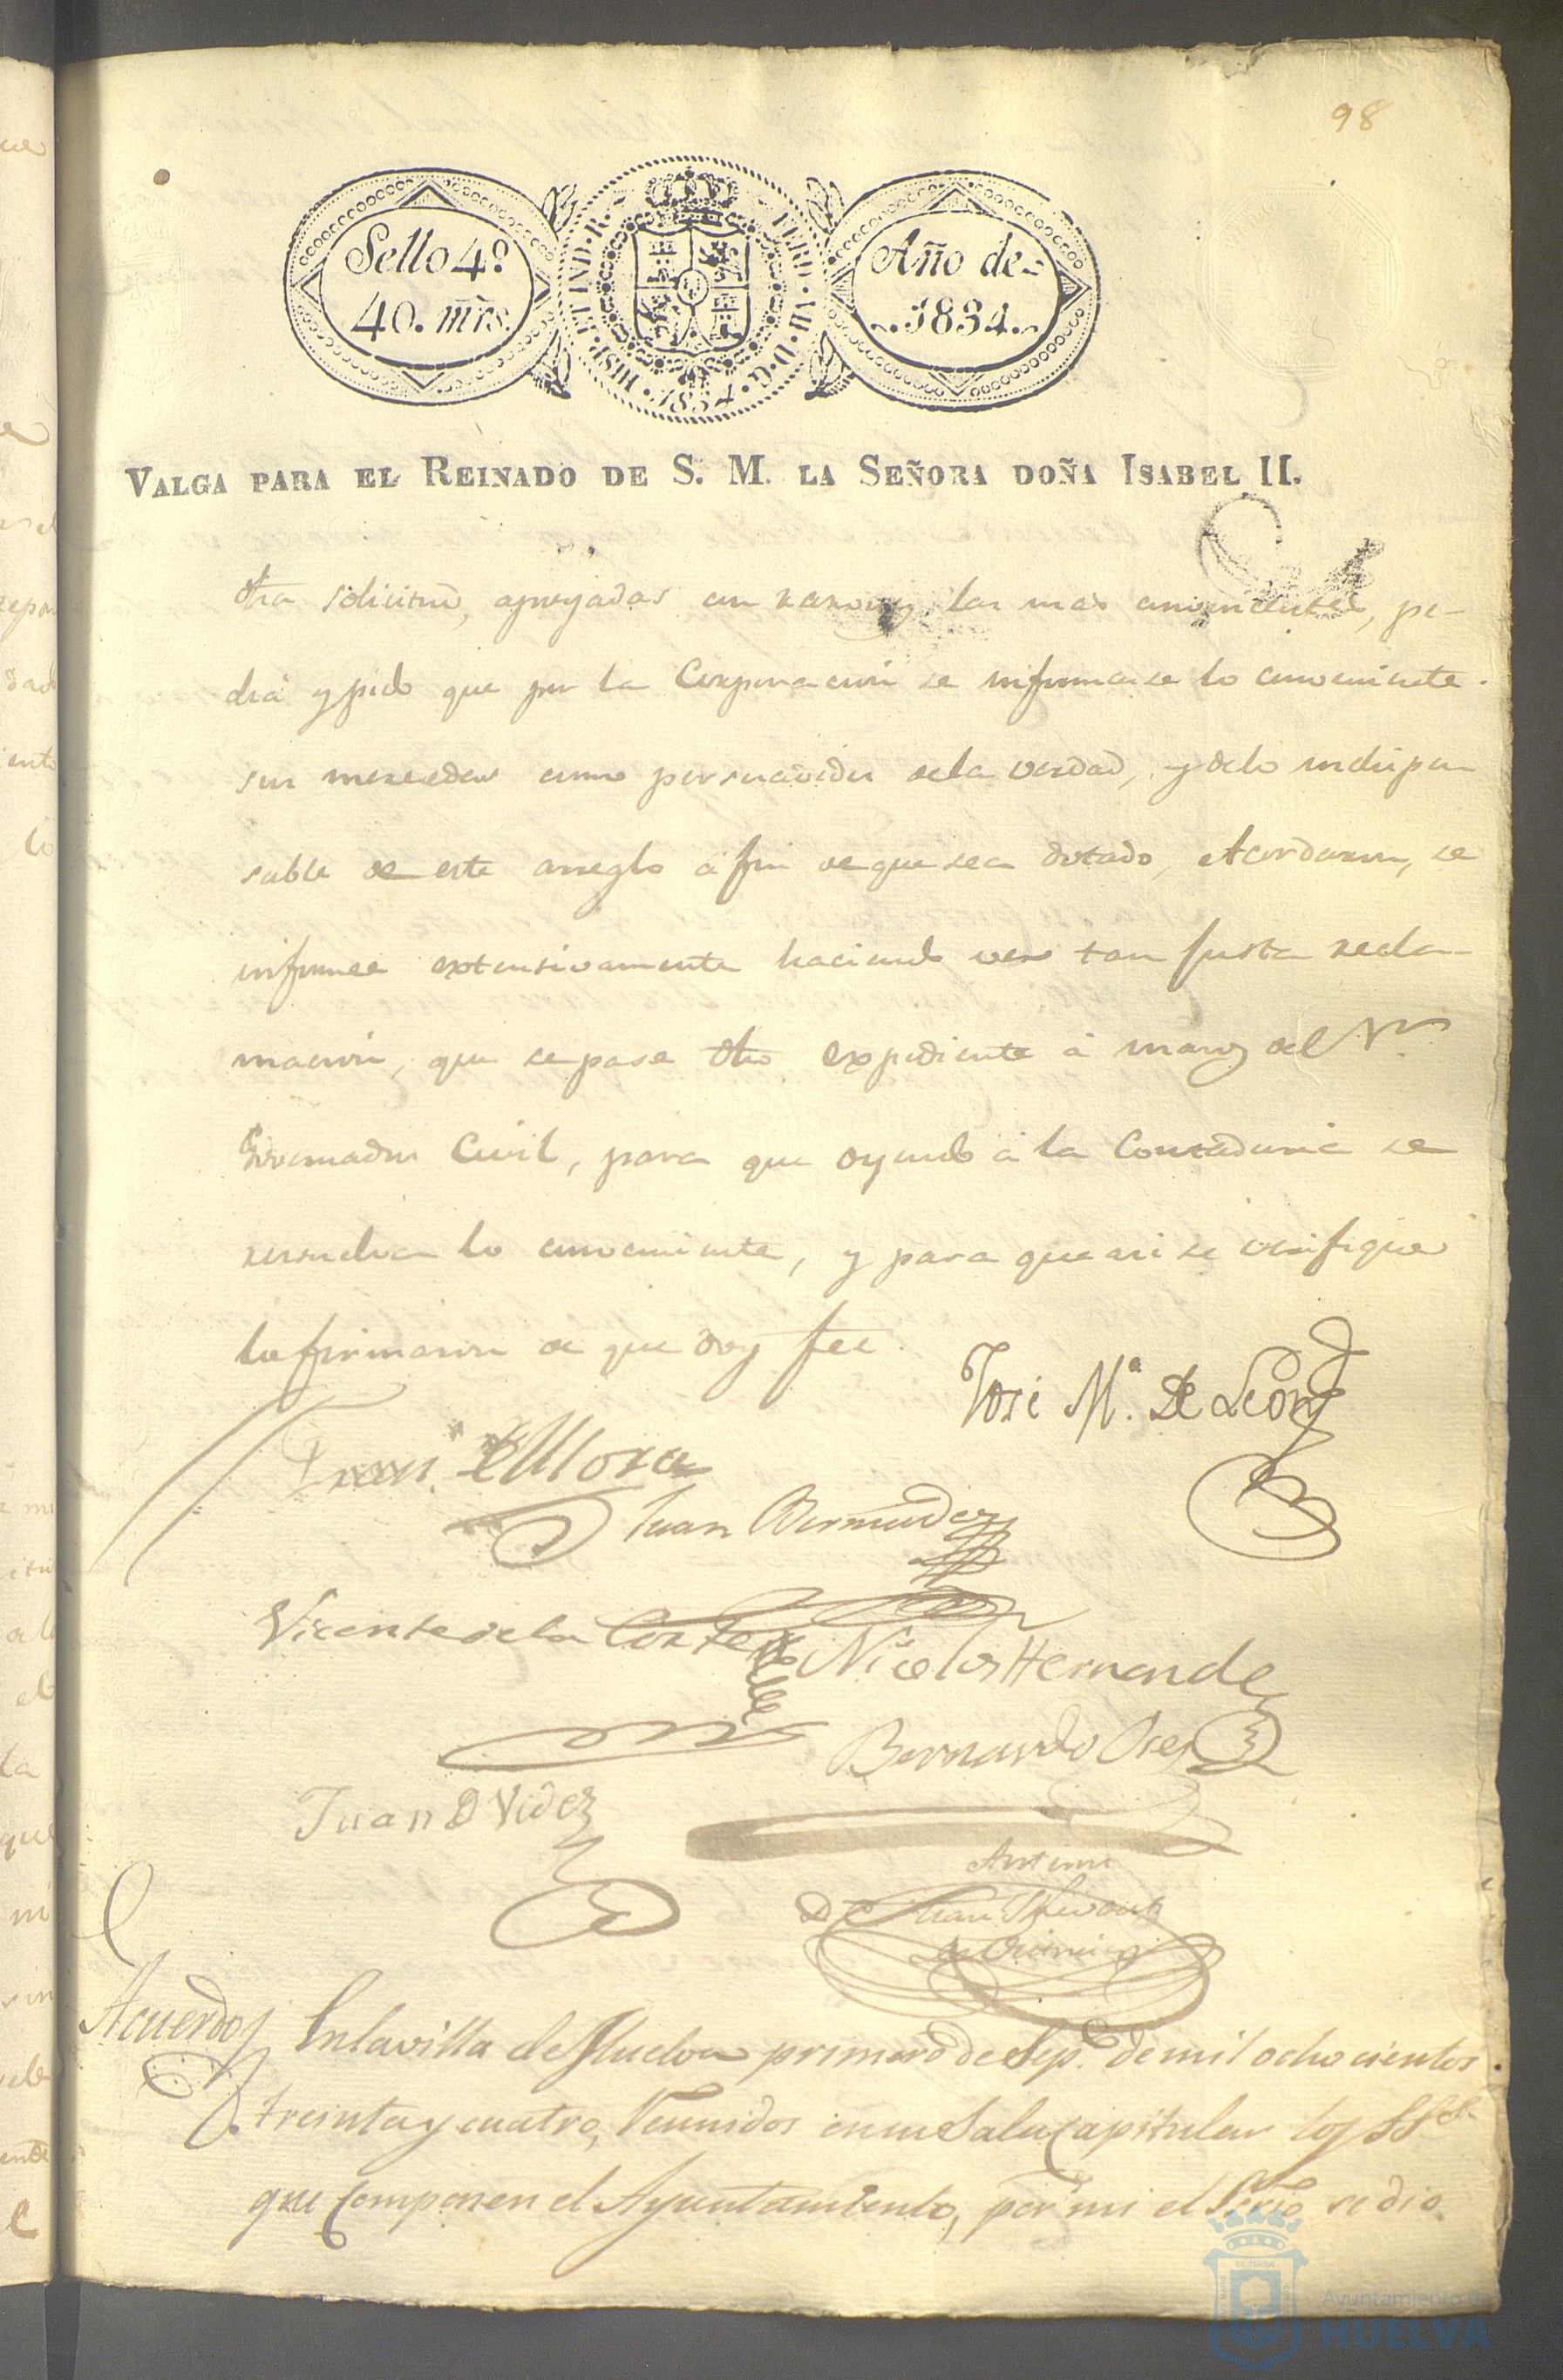 98
Sello 4º
40. mrs.
HISP. ET IND. R.
FERD. VII. D. G.
1834
Año de
1834.
VALGA PARA EL REINADO DE S. M. LA SEÑORA DOÑA ISABEL II.
dha solicitud, apoyadas en razones las mas convenientes, pe-
dia y pido que por la Corporacion se informase lo conveniente.
sus mercedes como persuadidos dela verdad, y delo indispen
sable de este arreglo á fin de que sea dotado, Acordaron, se
informe extensivamente haciendo ver tan justa recla-
macion, que se pase dho expediente á manos del Sr.
Governador Civil, para que oyendo á la Contaduria se
resuelva lo conveniente, y para que asi se verifique
lo firmaron de que doy fee.
José Mª. De Leon
Franco. de Mora
Juan Bermudez
Vicente de la Corte
Nicolas Hernandez
Bernardo
Juan D Videz
Antemi
Juan
Acuerdo
En la villa de Huelva primero de Sepe. de mil ochocientos
treinta y cuatro, Reunidos en su Sala Capitular los SSes.
que componen el Ayuntamiento, por mi el Srio se dio
Ayuntamiento de
HUELVA